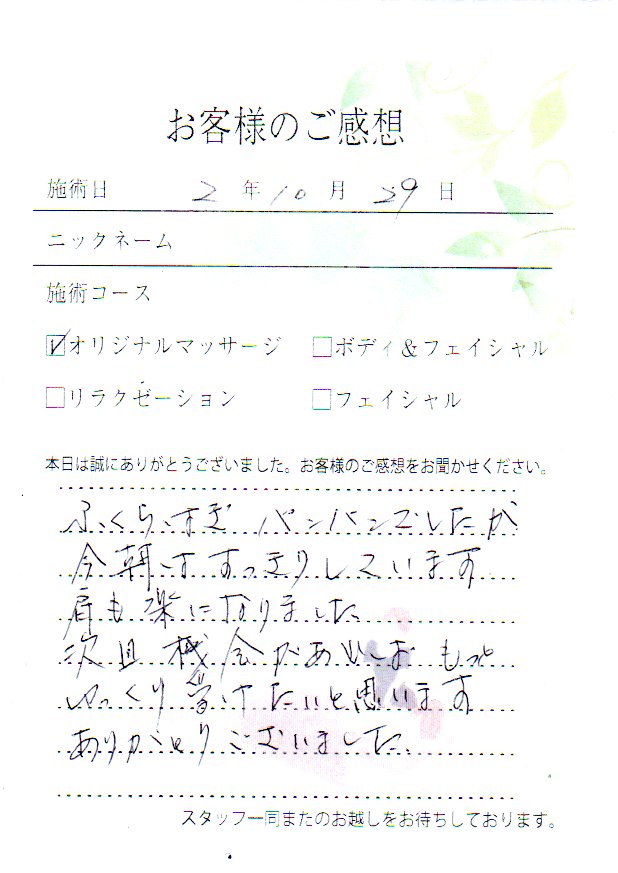 お客様のご感想
施術日 2年10月29日
ニックネーム
施術コース
☑オリジナルマッサージ □ボディ&フェイシャル
□リラクゼーション □フェイシャル
本日は誠にありがとうございました。お客様のご感想をお聞かせください。
ふくらはぎ パンパンでしたが
今朝はすっきりしています
肩も楽になりました
次回機会があればもっと
ゆっくり受けたいと思います
ありがとうございました。
スタッフ一同またのお越しをお待ちしております。